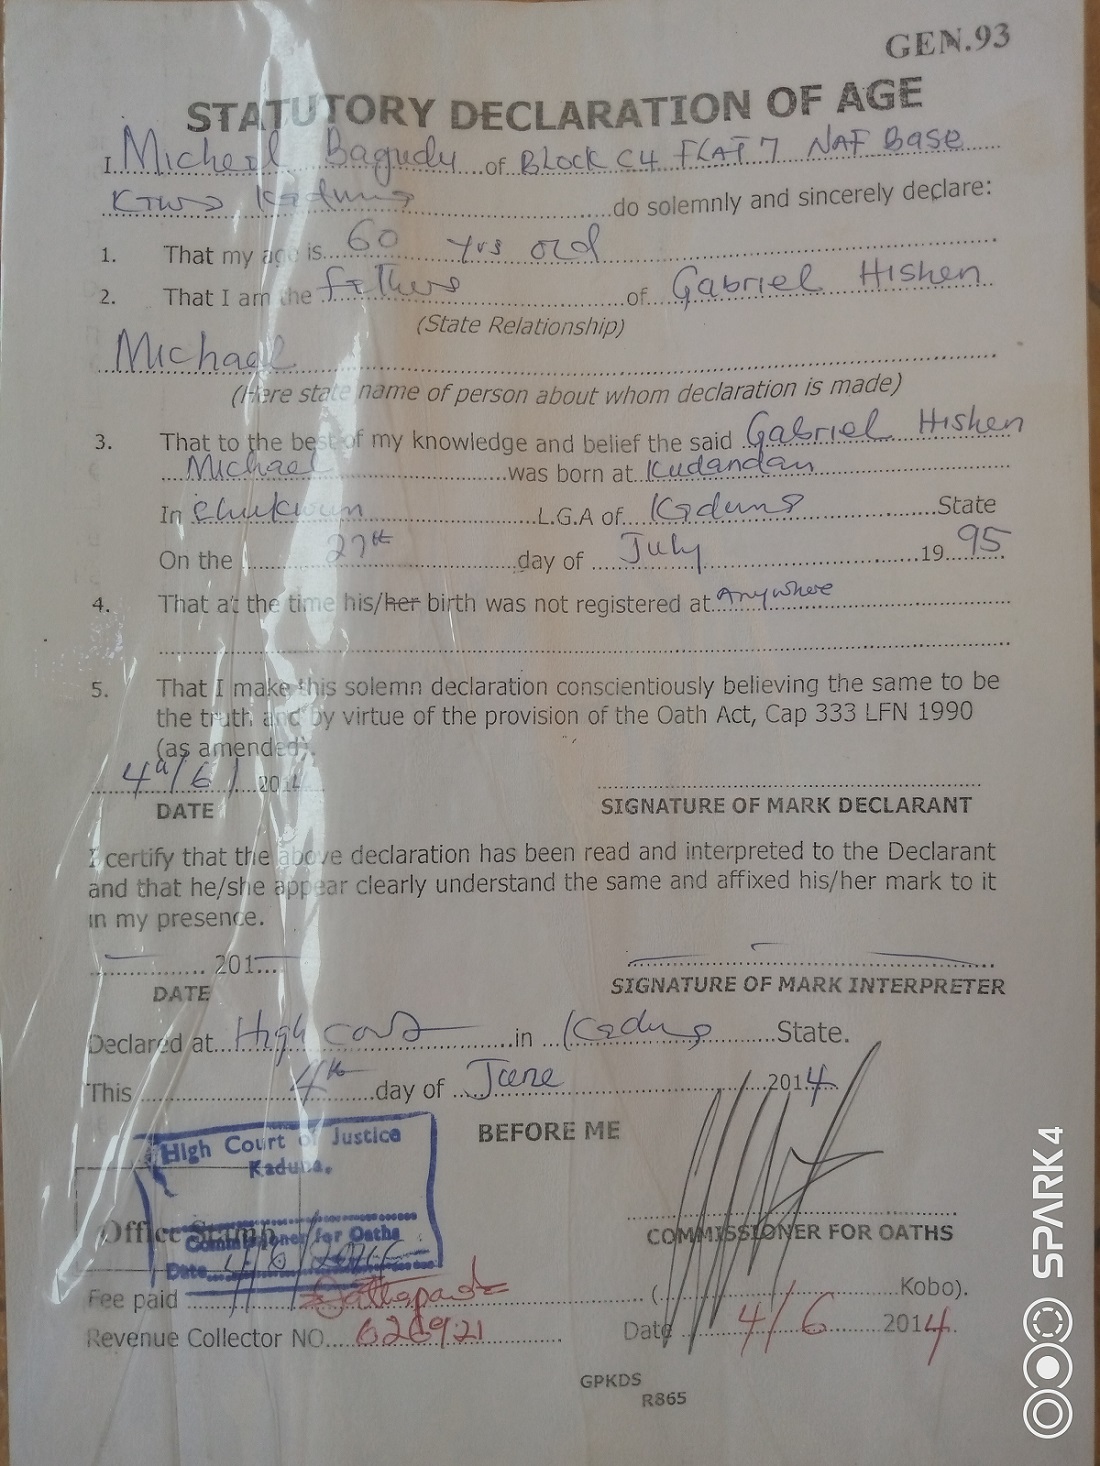 GEN.93
STATUTORY DECLARATION OF AGE
I Micheal Bagudu of BLOCK C4 FLAT 7 NAF Base
Kaduna do solemnly and sincerely declare:
1. That my age is 60 yrs old
2. That I am the father of Gabriel Hishen
(State Relationship)
Michael
(Here state name of person about whom declaration is made)
3. That to the best of my knowledge and belief the said Gabriel Hishen
Michael was born at Kudandan
In Chukwun L.G.A of Kaduna State
On the 27th day of July 1995
4. That at the time his/her birth was not registered at Anywhere
5. That I make this solemn declaration conscientiously believing the same to be
the truth and by virtue of the provision of the Oath Act, Cap 333 LFN 1990
(as amended).
4th/6/2014
DATE SIGNATURE OF MARK DECLARANT
I certify that the above declaration has been read and interpreted to the Declarant
and that he/she appear clearly understand the same and affixed his/her mark to it
in my presence.
201
DATE SIGNATURE OF MARK INTERPRETER
Declared at High Court in Kaduna State.
This 4th day of June 2014
BEFORE ME
High Court of Justice
Kaduna.
Office Stamp
Commissioner for Oaths
Date
COMMISSIONER FOR OATHS
Fee paid ( Kobo).
Revenue Collector NO. 626921 Date 4/6 2014.
GPKDS
R865
SPARK4